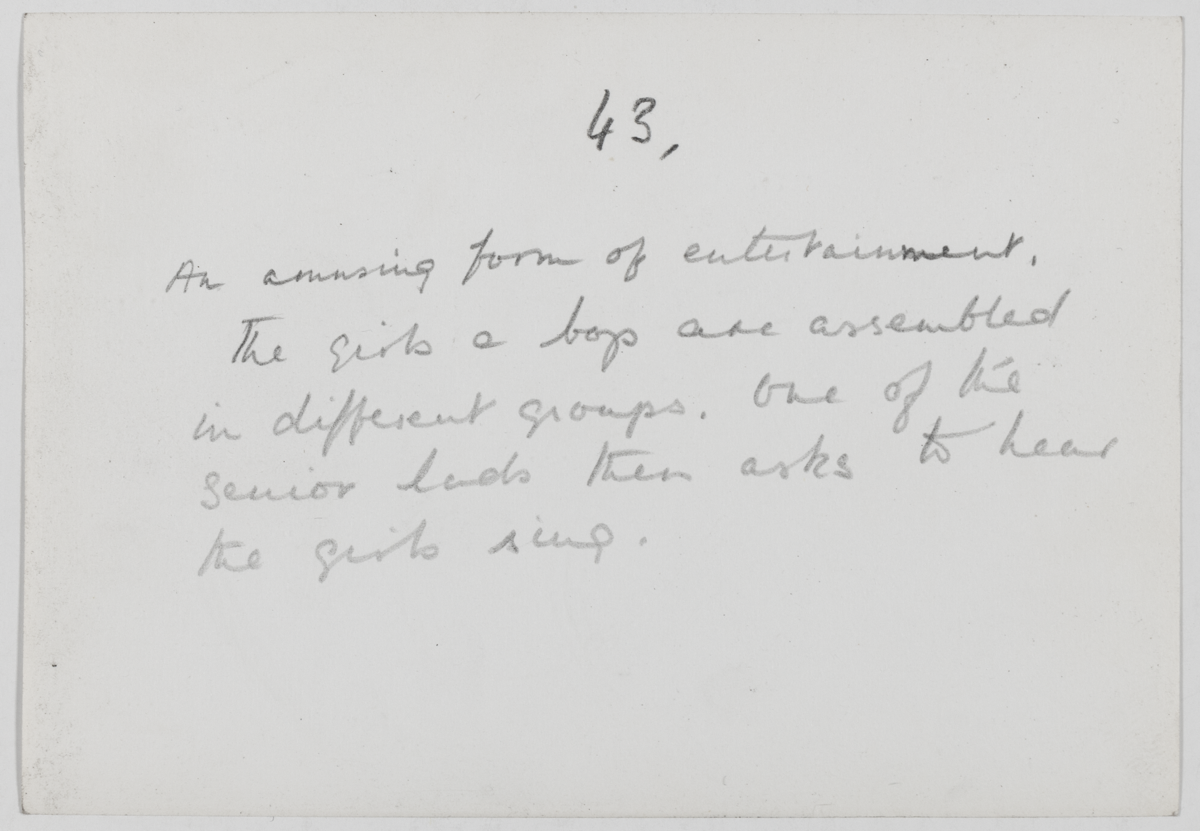 43,
An amusing form of entertainment.
The girls & boys are assembled
in different groups. One of the
senior lads then asks to hear
the girls sing.